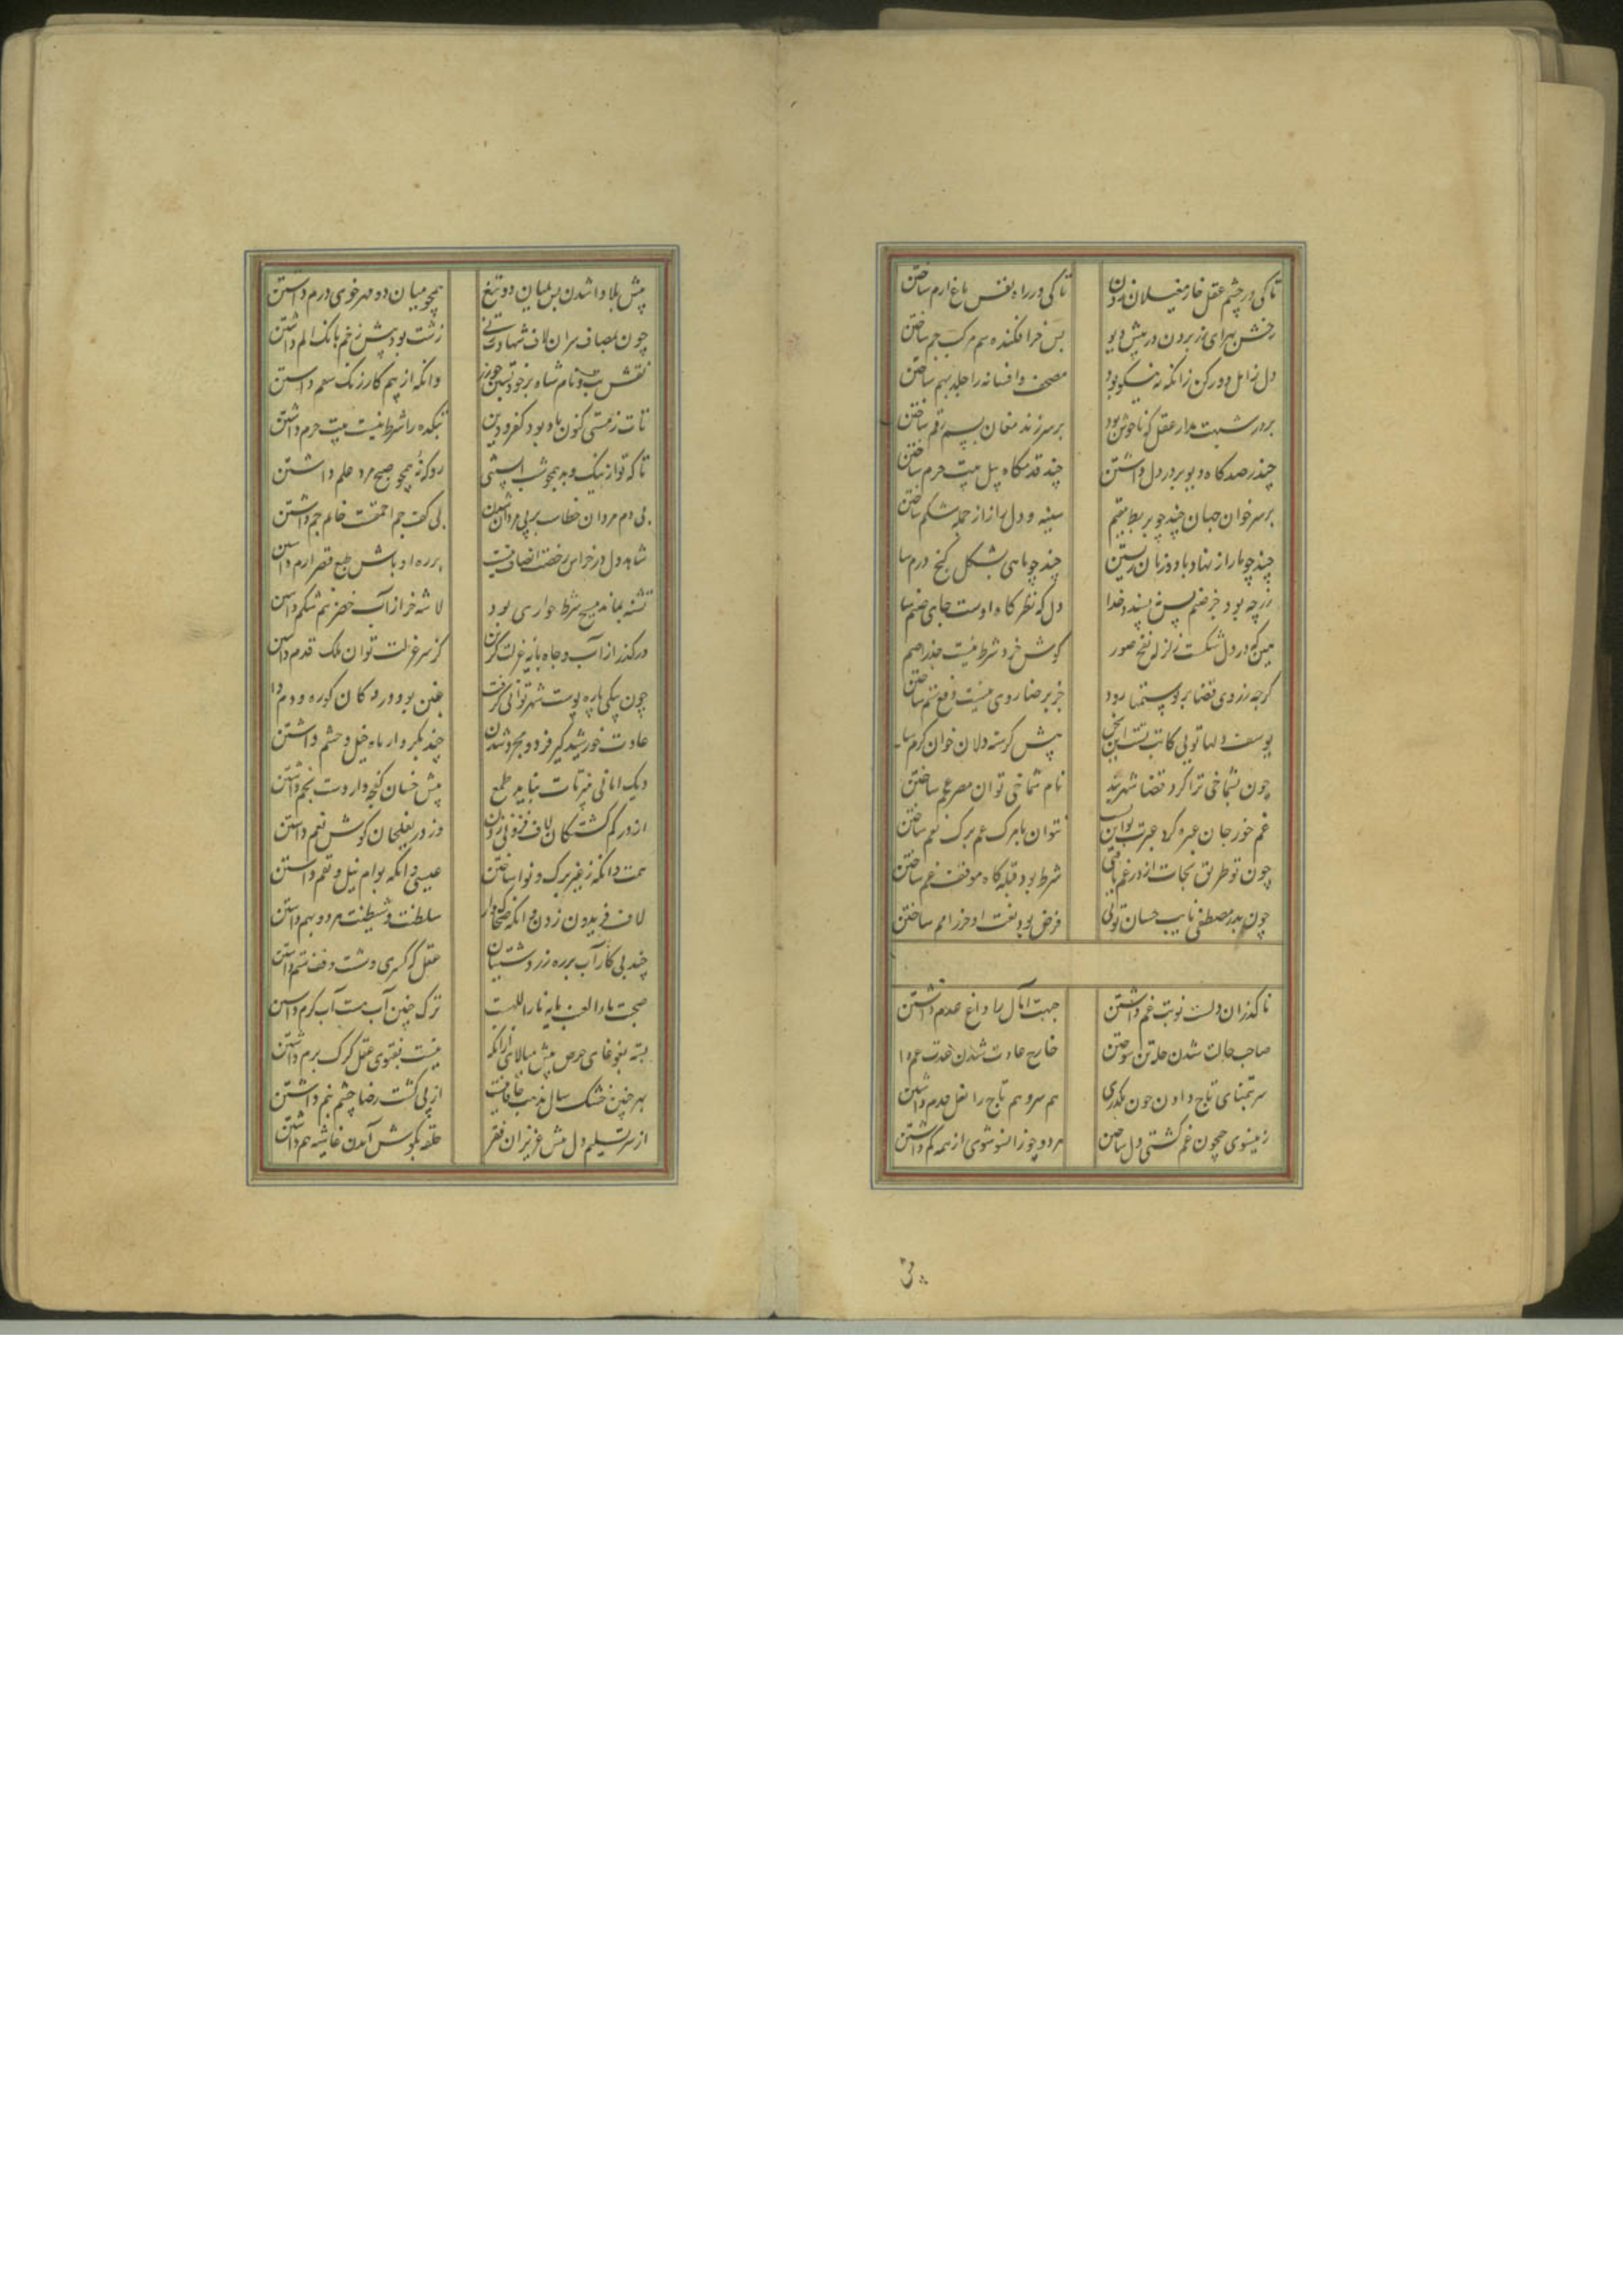 تا کی در چشم عقل خار مغیلان زدن
تا کی در راه نفس باغ ارم ساختن
رخش بهرای زر بردن در پیش دیو
پس خر افکنده سم مرکب جم ساختن
دل ز امل دور کن زانکه نه نیکو بود
مصحف و افسانه را جلد بهم ساختن
بر در عقل که ناخوش بود
بر سر زند مغان بسم رقم ساختن
چند رصدگاه دیو بر در دل داشتن
چند قدمگاه پیل بیت حرم ساختن
بر سر خوان جهان چند چو بربط مقیم
سینه و دل را از از جمله شکم ساختن
چند چو مار از نهاد با دو زبان زیستن
چند چو ماهی بشکل گنج درم سا
زر چه بود جز صنم پس نپسندد خدا
دل که نظرگاه اوست جای صنم سا
بین که در دل شکست زلزله نفخ صور
گوش خرد شرط نیست جذر اصم
گرچه ز روی قضا بر تو ستمها رود
جز برضا روی نیست دفع ستم ساختن
یوسف دلها تویی کایت تست این سخن
پیش گرسنه دلان خوان کرم سا
چون بشماخی ترا کرد قضا شهربند
نام شماخی توان مصر عجم ساختن
غم خور جان عبره کرد عبرت
نتوان بابرک غم برک نعم ساختن
چون تو طریق نجات از در غم یافتی
شرط بود قبله گاه موقف غم ساختن
چون بدر مصطفی نایب حسان توئی
فرض بود نعت او حرز امم ساختن
ناگذران دلست نوبت غم داشتن
جبهت آمال را داغ عدم داشتن
صاحب حالت شدن حله تن سوختن
خارج عادت شدن عدت غم دا
سر بتمنای تاج دادن چون بگذری
هم سر و هم تاج را نعل قدم داشتن
زینسوی جیحون غم کشتی دل ساختن
هر دو چو زانسو شوی از همه کم داشتن
پیش بلا وا شدن پس بمیان دو تیغ
همچو میان ده مهر خوی درم داشتن
چون بمصاف سران لاف شهادت زنی
زشت بود پیش زخم بانک الم داشتن
نقش بت و نام شاه بر خود بستن چو زر
وانگه از بیم گاز رنگ سقم داشتن
تات ز مستی کنون باد بود کفر و دین
بتکده را شرط نیست بیت حرم داشتن
تا که تو از نیک و بد همچو شب آبستنی
رو که نه همچو صبح مرد علم داشتن
بی دم مردان خطاست بر پی مردان شدن
بی کف جم احمقیست خاتم جم داشتن
شاهد دل در خراس رخصت انصاف نیست
بر ره اوباش طبع قصر ارم داشتن
تشنه بمانده مسیح شرط حواری بود
لاشه خر از آب خضر نم شکم داشتن
درگذر از آب و جاه پایه عزلت گزین
کز سر عزلت توان ملک قدم داشتن
چون بیکی پاره پوست شهر توانی گرفت
غبن بود در دکان کوره و دم دا
عادت خورشید گیر فرد و مجرد شدن
چند بکردار ماه خیل و حشم داشتن
دیک امانی مپز تات نیاید طمع
پیش خسان کفچه وار دست بخم داشتن
از در کم گشتگان لاف فزونی زدن
وز در بغلیجان گوش نعم داشتن
همت وانگه ز غیر برگ و نوا ساختن
عیسی وانگه بوام نیل و بقم داشتن
لاف فریدون زدن وانگه ضحاک وار
سلطنت و شیطنت هر دو بهم داشتن
چند پی کار آب بر ره زردشتیان
عقل که کسری وشست وقف ستم داشتن
صحبت ماء العنب مایه نار اللهست
ترک چنین آب هست آب کرم داشتن
بسته بغوغای حرص پیش میالای ازانکه
نیست بفتوی عقل گرگ برم داشتن
بهر چنین خشک سال مذهب خاقانیست
از پی کشت رضا چشم بنم داشتن
از سر تسلیم دل پیش عزیزان فقر
حلقه بگوش آمدن غاشیه هم داشتن